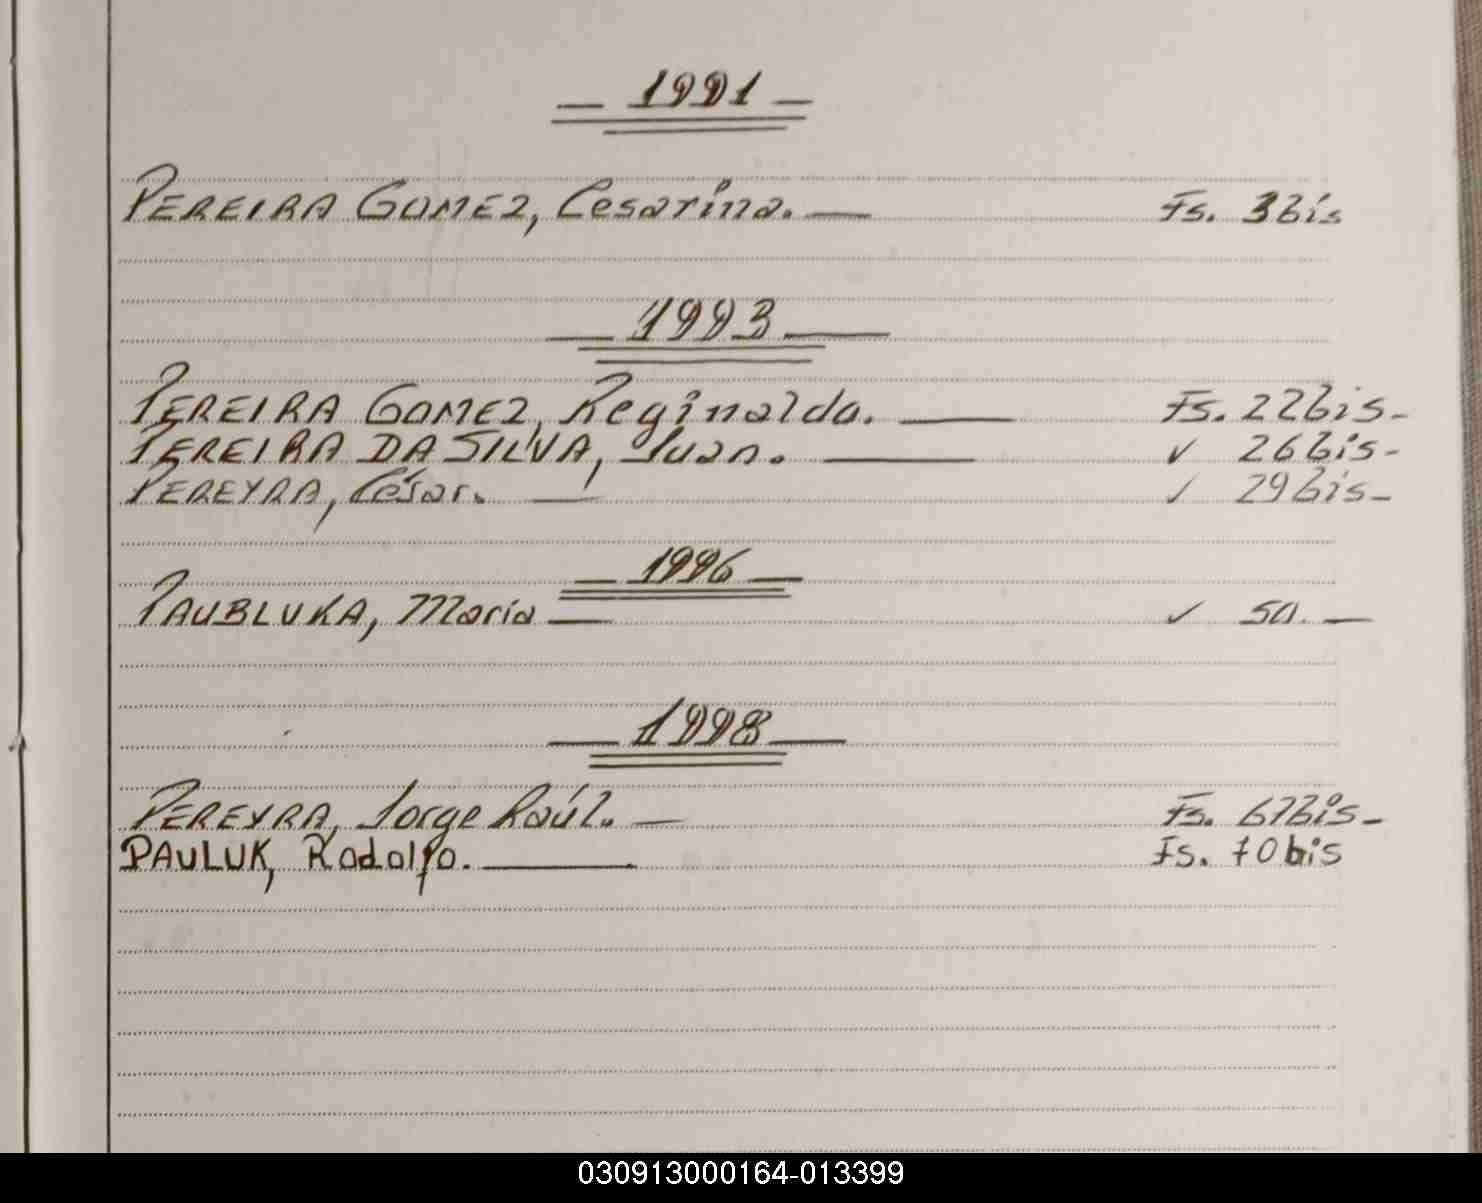 — 1991 —
PEREIRA GOMEZ, Cesarina. — Fs. 3bis
— 1993 —
PEREIRA GOMEZ, Reginaldo. — Fs. 22bis-
PEREIRA DA SILVA, Juan. — ✓ 26bis-
PEREYRA, César. — ✓ 29bis-
— 1996 —
PAUBLUKA, Maria — ✓ 50. —
— 1998 —
PEREYRA, Jorge Raúl. — Fs. 67bis-
PAULUK, Rodolfo. — Fs. 70bis
030913000164-013399